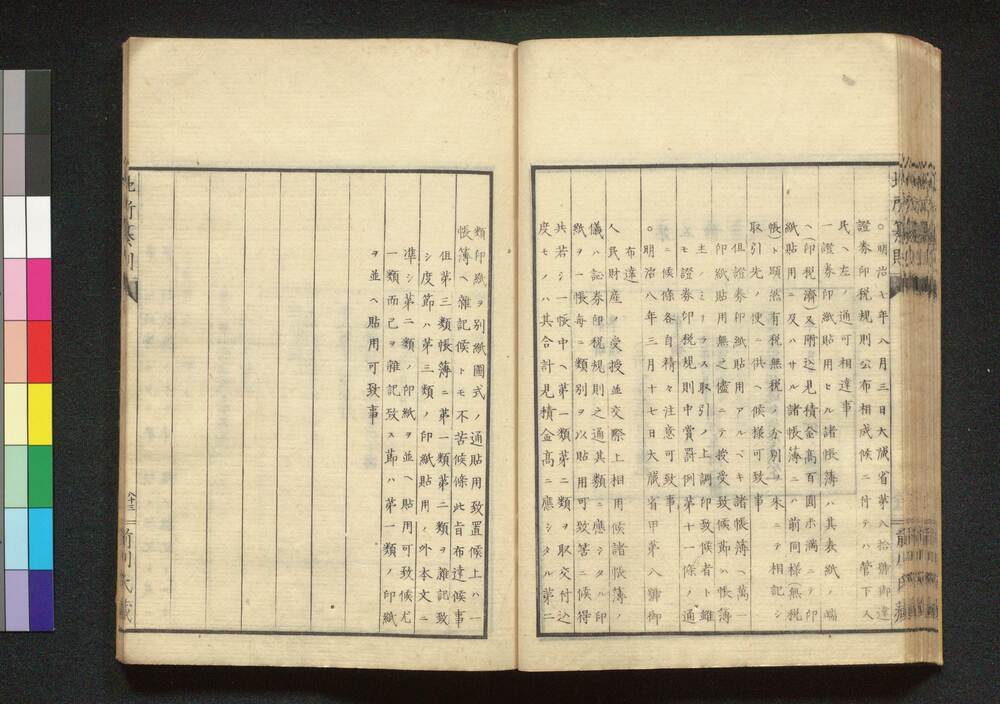 ○明治七年八月三日大藏省第八拾號御達
證券印税規則公布相成候ニ付テハ管下人
民ヘ左ノ通可相達事
一證券印紙貼用ヒル諸帳簿ハ其表紙ノ端
ヘ(印税濟又附込見積金高百圓ホ滿ニテ印
紙貼用ニ及ハサル諸帳簿ニハ前同樣(無税
帳)ト顕然有税無税ノ分別ヲ朱ニテ相記シ
取引先ノ便ニ供ヘ候樣可致事
但證券印紙貼用アルベキ諸帳簿ヘ萬一
印紙貼用無之儘ニテ授受致候節ハ帳簿
主ノミナラス取引ノ上調印致候者ト雖
モ證券印税規則中賞罰例第十一條ノ通
ニ候條各自精々注意可致事
○明治八年三月十七日大藏省甲第八號御
布達
人民財産ノ受授並交際上相用候諸帳簿ノ
儀ハ證券印税規則之通其類ニ應シタル印
紙ヲ一帳每ニ類別ヲ以貼用可致筈ニ候得
共若シ一帳中ヘ第一類第二類ヲ取交付込
度モノハ其合計見積金高ニ應シタル第二
類印紙ヲ別紙圖式ノ通貼用致置候上ハ一
帳簿ヘ雜記候トモ不苦候條此旨布達候事
但第三類帳簿ニ第一類第二類ヲ雜記致
シ度節ハ第三類ノ印紙貼用ノ外本文ニ
凖シ第二類ノ印紙ヲ並ヘ貼用可致候尤
一類而己ヲ雜記致ス節ハ第一類ノ印紙
ヲ並ヘ貼用可致事